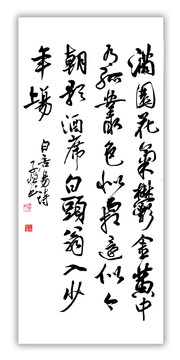 滿園花菊鬱金黃中
有孤叢色似霜還似今
朝歌酒席白頭翁入少
年場
白居易詩